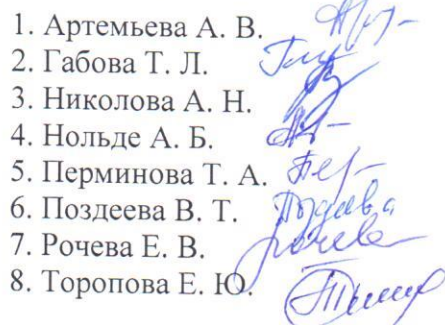 1. Артемьева А. В.
2. Габова Т. Л.
3. Николова А. Н.
4. Нольде А. Б.
5. Перминова Т. А.
6. Поздеева В. Т.
7. Рочева Е. В.
8. Торопова Е. Ю.